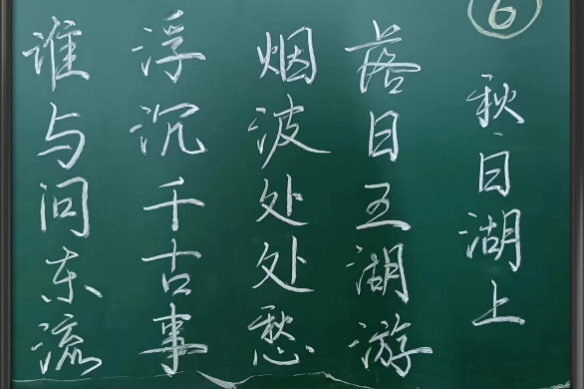 6
秋日湖上
落日五湖游
烟波处处愁
浮沉千古事
谁与问东流